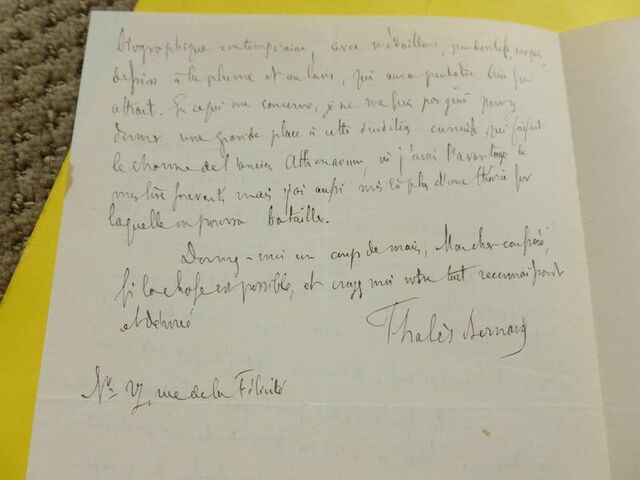 biographique contemporaine, avec médaillons, pendentifs, croquis,
dessins à la plume et au lavis, qui aura peut-être bien son
attrait. En ce qui me concerne, je ne me suis pas gêné pour y
donner une grande place à cette érudition curieuse qui faisait
le charme de l'ancien Athenaeum, où j'avais l'avantage de
vous lire souvent, mais j'ai aussi mis là plus d'une théorie sur
laquelle on pourra batailler.
Donnez-moi un coup de main, Mon cher confrère,
si la chose est possible, et croyez moi votre tout reconnaissant
et dévoué
Thalès Bernard
No 27, rue de la Félicité